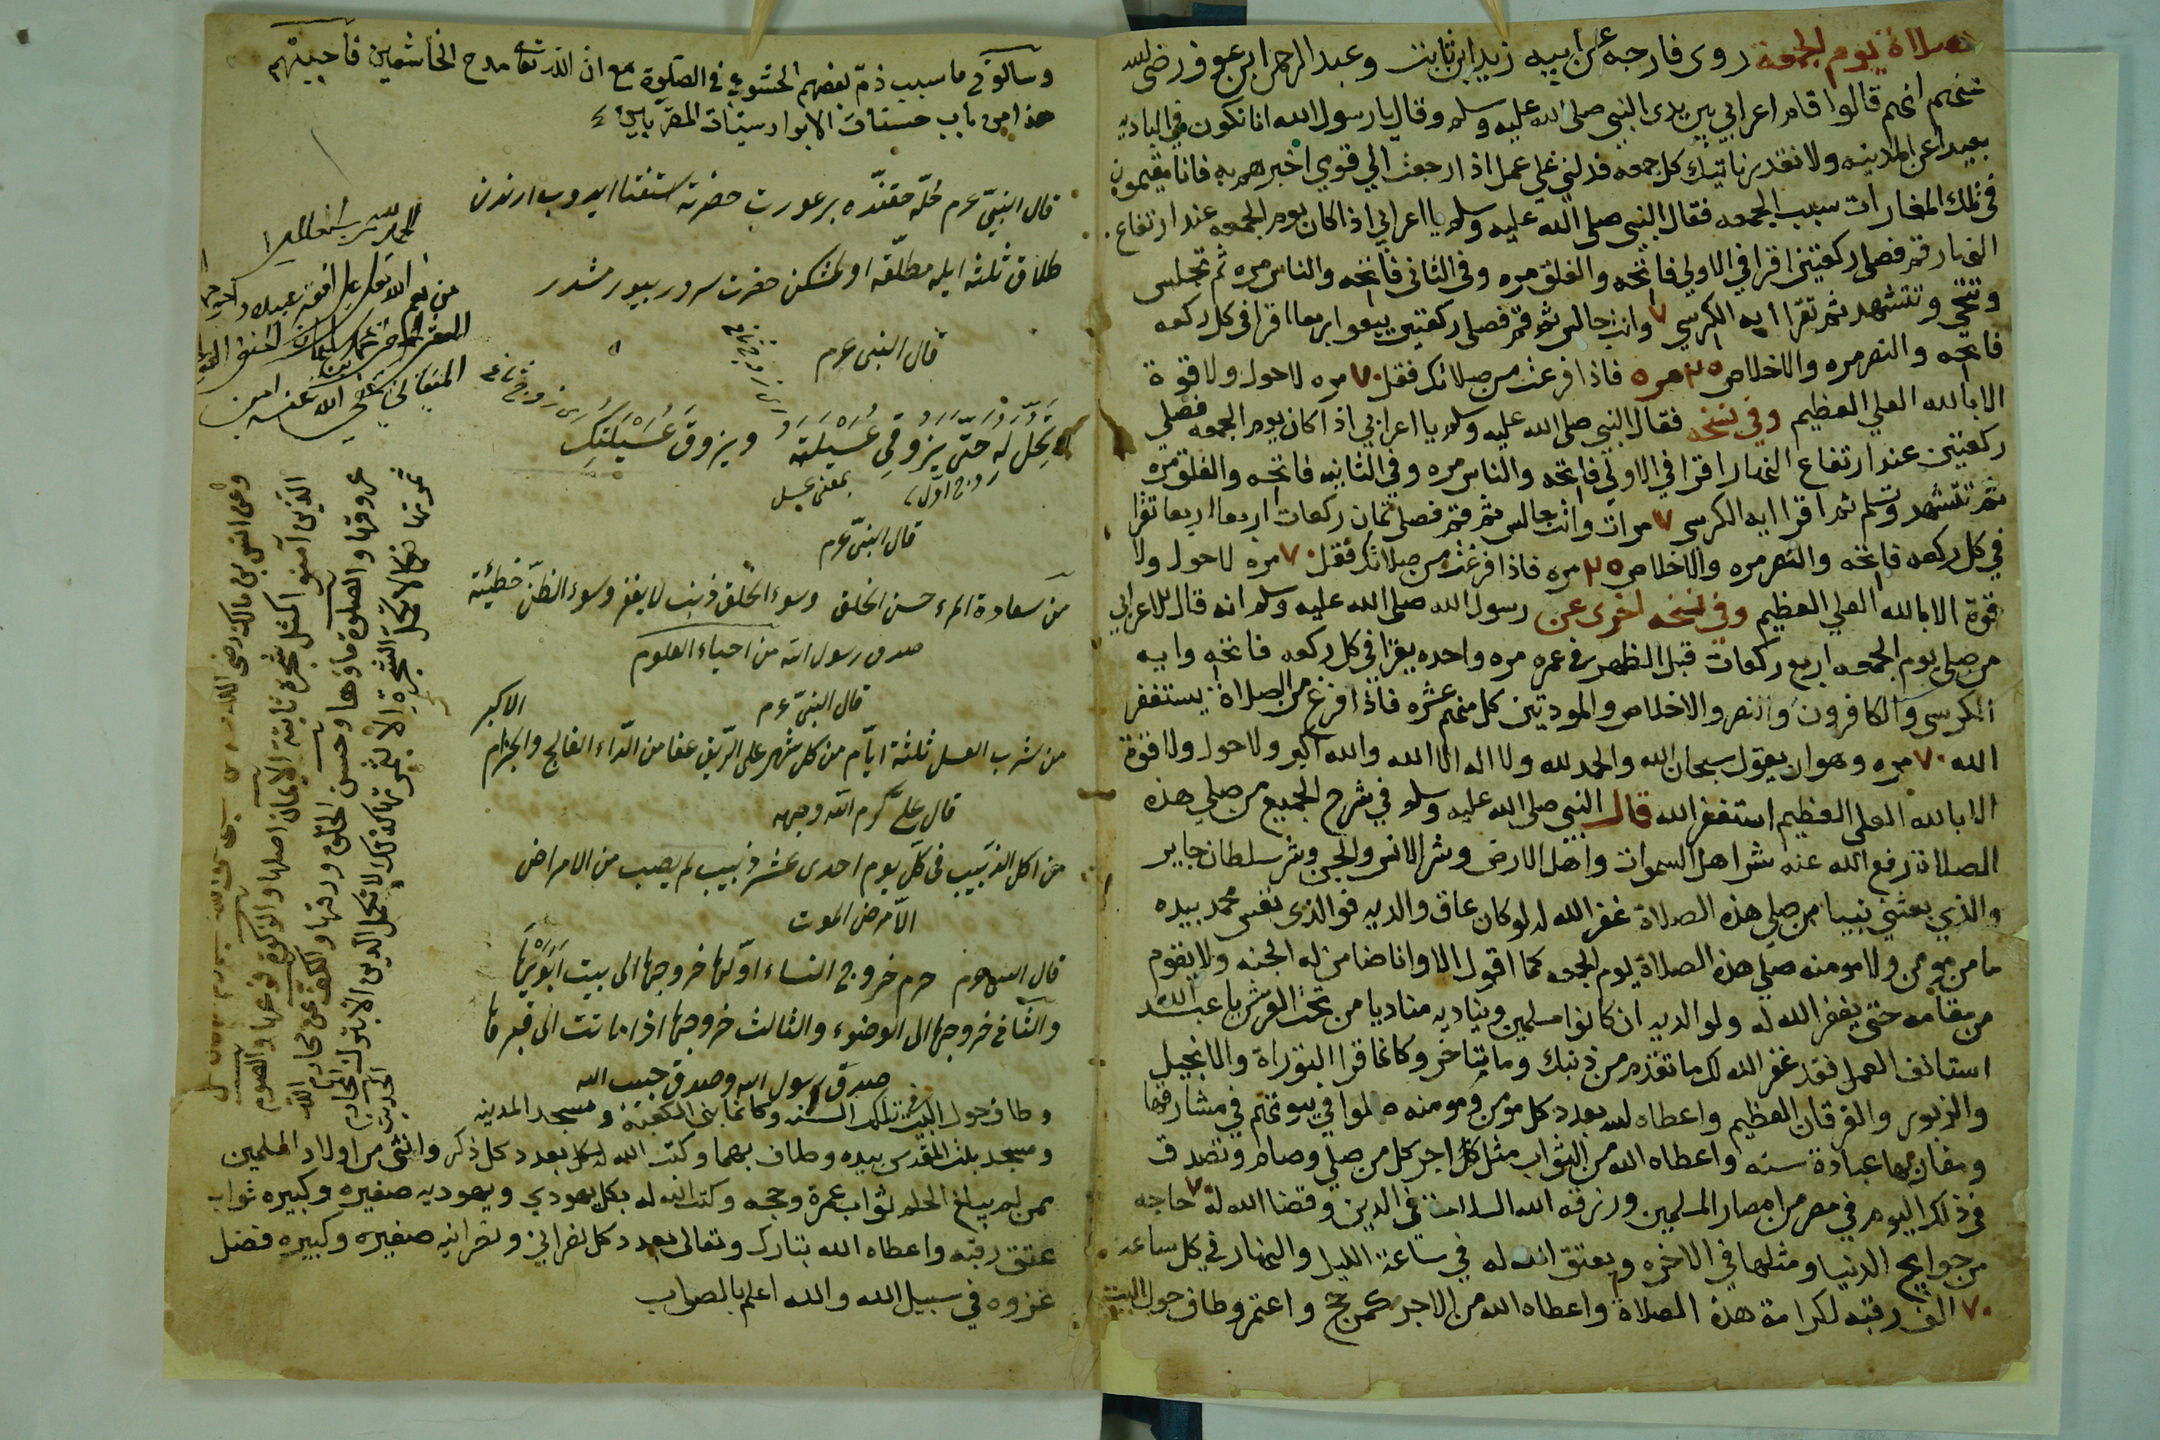 صلاة يوم الجمعة روى خارجه عن ابيه زيد ابن ثابت وعبد الرحمن ابن عوف رضي الله
عنهم انهم قالوا قام اعرابي بين يدى النبي صلى الله عليه وسلم وقال يا رسول الله انا نكون في الباديه
بعيدا عن المدينه ولا نقدر ناتيك كل جمعه فدلني علي عمل اذا رجعت الي قومي اخبرهم به فانا مقيمون
في تلك المغارات سبب الجمعه فقال النبي صلى الله عليه وسلم يا اعرابي اذا كان يوم الجمعه عند ارتفاع
النهار قم فصلي ركعتين اقرا في الاولي فاتحه والفلق مره وفي الثاني فاتحه والناس مره ثم تجلس
وتنتحي وتتشهد ثم تقرا ايه الكرسي ٧ وانت جالس ثم قم فصلي ركعتين اربعا اقرا في كل ركعه
فاتحه والنصر مره والاخلاص ٢٥ مره فاذا فرغت من صلاتك فقل ٧٠ مره لا حول ولا قوة
الا بالله العلي العظيم وفي نسخه فقال النبي صلى الله عليه وسلم يا اعرابي اذا كان يوم الجمعه فصلي
ركعتين عند ارتفاع النهار اقرا في الاولي فاتحه والناس مره وفي الثانيه فاتحه والفلق مره
ثم تتشهد وتسلم ثم اقرا ايه الكرسي ٧ مرات وانت جالس ثم قم فصلي ثمان ركعات اربعا اربعا تقرا
في كل ركعه فاتحه والنصر مره والاخلاص ٢٥ مره فاذا فرغت من صلاتك فقل ٧٠ مره لا حول ولا
قوة الا بالله العلي العظيم وفي نسخه اخرى عن رسول الله صلى الله عليه وسلم انه قال للاعرابي
من صلي يوم الجمعه اربع ركعات قبل الظهر في عمره مره واحده يقرا في كل ركعه فاتحه وايه
الكرسي والكافرون والنصر والاخلاص والموذتين كل منهم عشره فاذا فرغ من الصلاة يستغفر
الله ٧٠ مره وهو ان يقول سبحان الله والحمد لله ولا اله الا الله والله اكبر ولا حول ولا قوة
الا بالله العلي العظيم استغفر الله قال النبي صلى الله عليه وسلم في شرح الجميع من صلي هذه
الصلاة رفع الله عنه شر اهل السموات واهل الارض وشر الانس والجن وشر سلطان جاير
والذي بعثني نبيا من صلي هذه الصلاة غفر الله له لو كان عاق والديه فو الذى نفس محمد بيده
ما من مومن ولا مومنه صلي هذه الصلاة يوم الجمعه كما اقول الا وانا ضامن له الجنه ولا يقوم
من مقامه حتي يغفر الله له ولو الديه ان كانوا مسلمين ويناديه مناديا من تحت العرش يا عبد الله
استانف العمل فقد غفر الله لك ما تقدم من ذنبك وما تتاخر وكانما قرا التوراة والانجيل
والزبور والفرقان العظيم واعطاه الله بعدد كل مومن ومومنه صلوا في بيوتهم في مشارقها
ومغاربها عبادة سنه واعطاه الله من الثواب مثل اجر كل من صلي وصام وتصدق
في ذلك اليوم في مصر من امصار المسلمين ورزقه الله السلامة في الدين وقضا الله له ٧٠ حاجه
من حوايج الدنيا ومثلها في الاخره ويعتق الله له في ساعة الليل والنهار في كل ساعه
٧٠ الف رقبه لكرامة هذه الصلاة واعطاه الله من الاجر كمن حج واعتمر وطاف حول البيت
وسألوني ما سبب ذم بعضهم الخشوع في الصلوة مع ان الله تعالى مدح الخاشعين فاجبتهم
هذا من باب حسنات الابرار سيئات المقربين
قال النبي عم
طلاق ثلثه ايله مطلقه حضرت سرور بيورمشدر
قال النبى عم
لا تحل له حتى يزوقي عسيلته ويزوق عسيلتك
زوج اول
بمعنى عسل
قال النبى عم
من سعادة المرء حسن الخلق وسوء الخلق ذنب لا يغفر وسوء الظن خطيئة
صدق رسول الله من احياء العلوم
قال النبى عم
من شرب العسل ثلثة ايام من كل شهر على الريق عفا من الداء الاكبر الفالج والجزام
قال على كرم الله وجهه
من اكل الذبيب فى كل يوم احدى عشر ذبيب لم يصب من الامراض
الا مرض الموت
قال عم حرم خروج النساء اولها خروجها الى بيت ابويها
والثانى خروجها الى الوضوء والثالث خروجها اذا ماتت الى قبرها
صدق رسول الله وصدق حبيب الله
وطاف حول البيت في تلك السنه وكانما بني الكعبة ومسجد المدينه
ومسجد بيت المقدس بيده وطاف بهما وكتب الله له بكل بعدد كل ذكر وانثي من اولاد المسلمين
ممن لم يبلغ الحلم ثواب عمرة وحجه وكتب الله له بكل يهودي ويهوديه صغيره وكبيره ثواب
عتق رقبه واعطاه الله تبارك وتعالى بعدد كل نصراني ونصرانيه صغيره وكبيره فضل
غزوه في سبيل الله والله اعلم بالصواب
وعن انس بن مالك رضى الله
الذين آمنوا كمثل شجرة ثابتة الايمان اصلها والزكوة فرعها والصوم
عروقها والصلوة ماؤها وحسن الخلق ورقها والكف عن محارم الله
ثمرتها فكما لا تكمل الشجرة الا بثمرتها كذلك لا يكمل الدين الا بترك المحارم الحديث